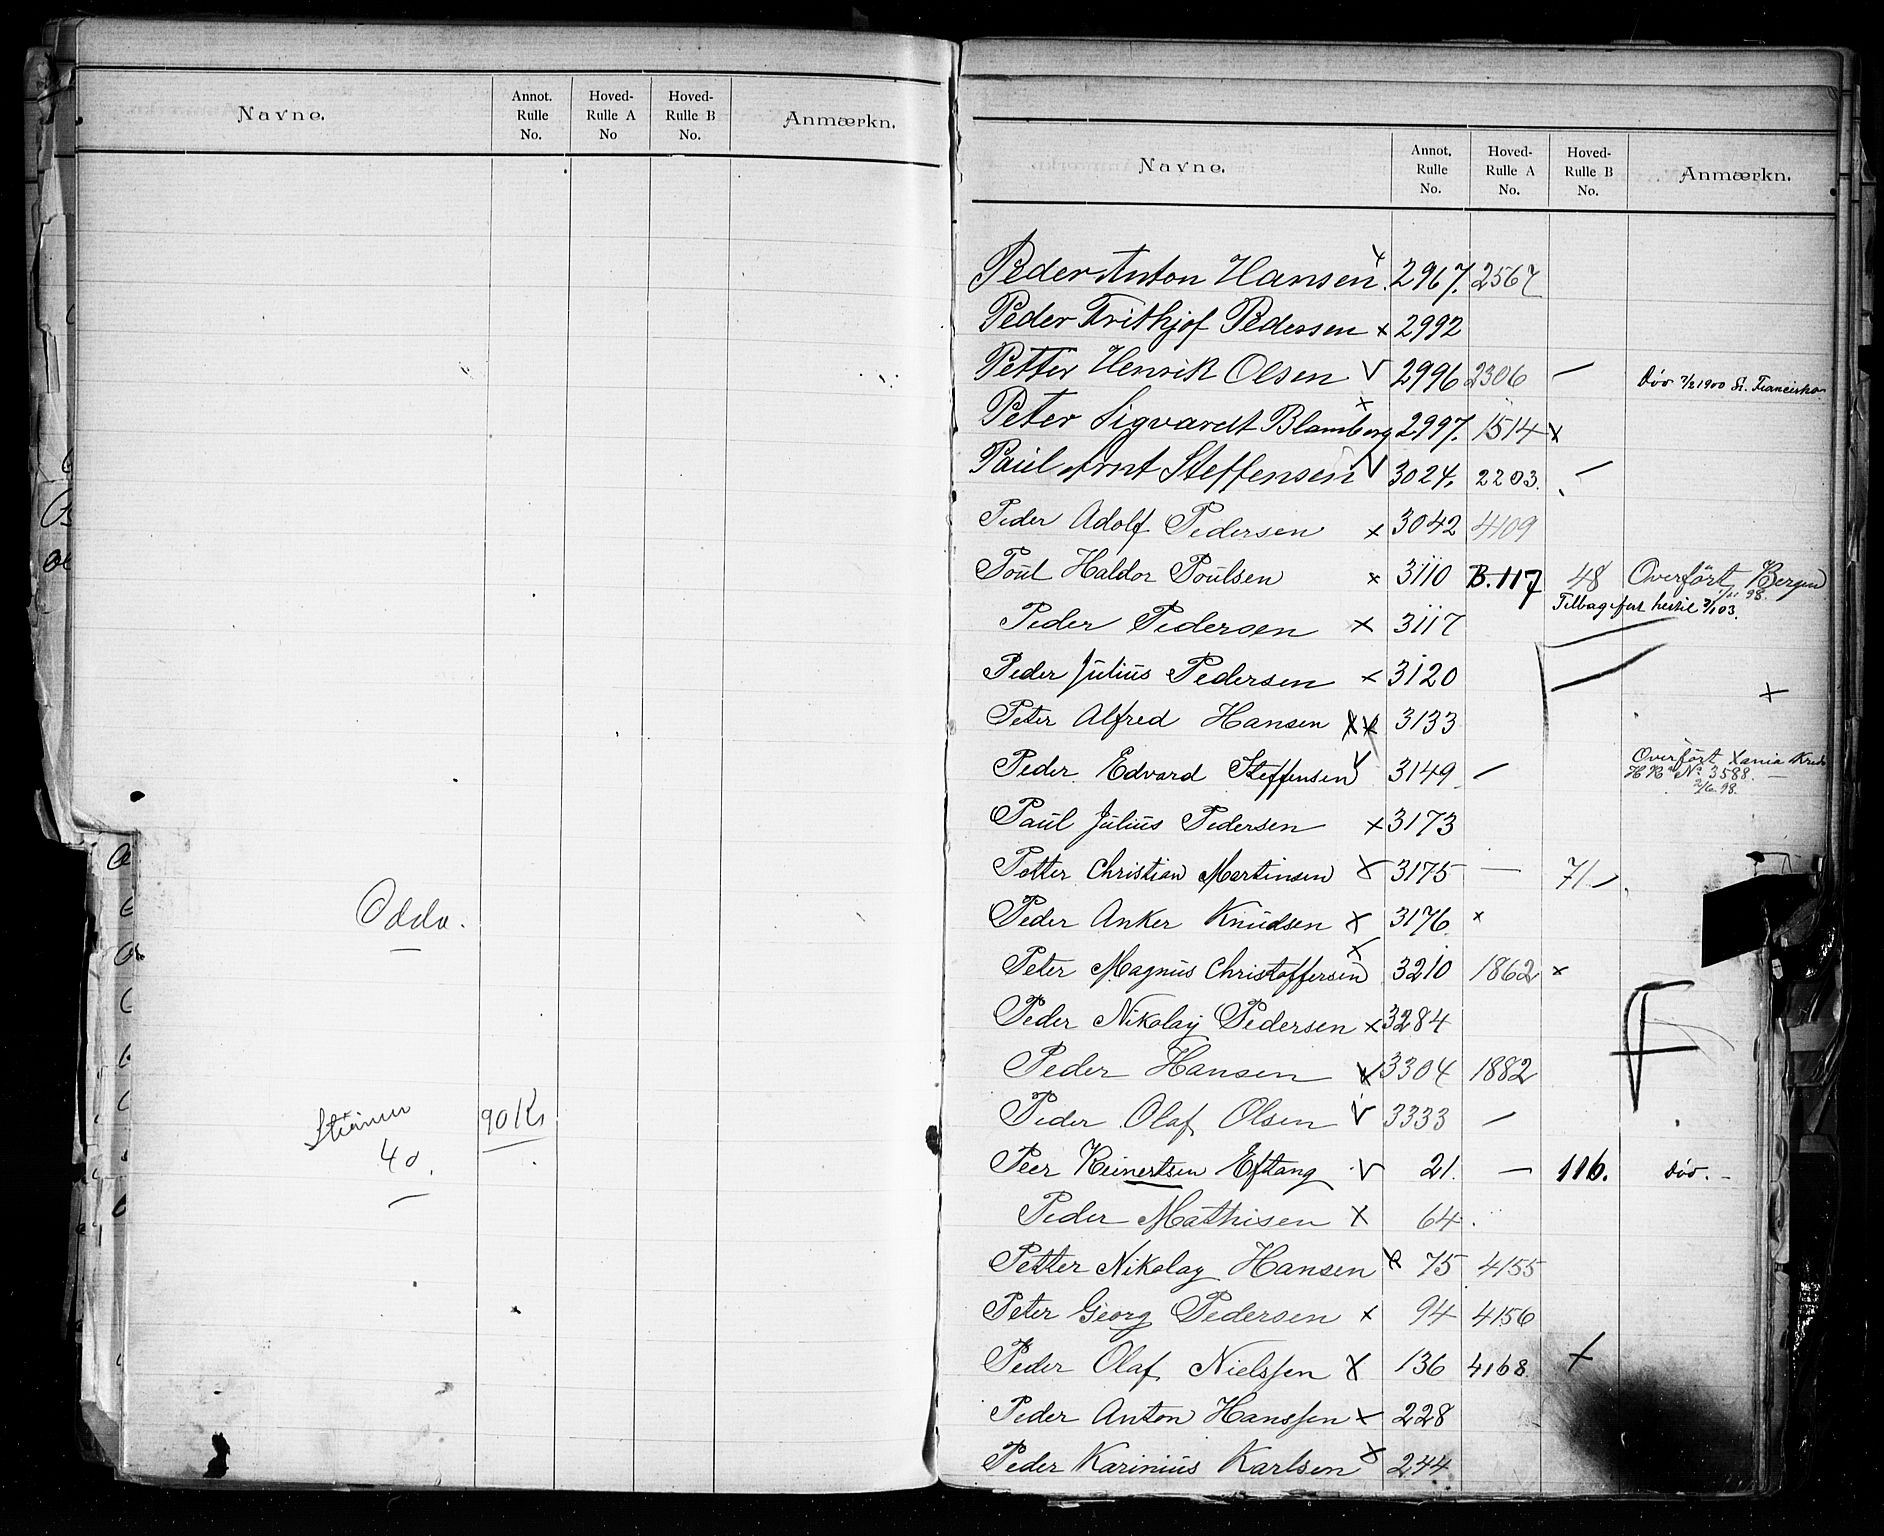 Navne. Annot. Rulle No. Hoved-Rulle A No Hoved-Rulle B No. Anmærkn.
Odda.
90 Kr
40.
Navne. Annot. Rulle No. Hoved-Rulle A No. Hoved-Rulle B No. Anmærkn.
Peder Anton Hansen. x 2967. 2567
Peder Frithjof Pedersen x 2992
Petter Henrik Olsen V 2996 2306 — Død 7/2 1900 St. Francisko
Peter Sigvardt Blomberg x 2997. 1514 x
Paul Arnt Steffensen V 3024. 2203. —
Peder Adolf Pedersen x 3042 4109
Poul Haldor Poulsen x 3110 B.117 48 Overført Bergen 1/11 98.
Tilbagef​ørt hertil 2/1 03.
Peder Pedersen x 3117
Peder Julius Pedersen x 3120
x
Peter Alfred Hansen xx 3133
Peder Edvard Steffensen V 3149 — Overført Xania Kreds
H R a No 3588. —
2/6 98.
Paul Julius Pedersen x 3173
Petter Christian Martinsen x 3175 — 71. —
Peder Anker Knudsen x 3176. x
Peter Magnus Christoffersen x 3210 1862 x
Peder Nikolay Pedersen x 3284
F
Peder Hansen x 3304 1882
Peder Olaf Olsen V 3333 —
Peer Reinertsen Eftang V 21. — 116. Død. —
Peder Mathisen X 64.
Petter Nikolay Hansen x 75 4155
Peter Georg Pedersen x 94 4156
Peder Olaf Nielssen X 136 4168. x
Peder Anton Hanssen x 228
Peder Karinius Karlsen x 244